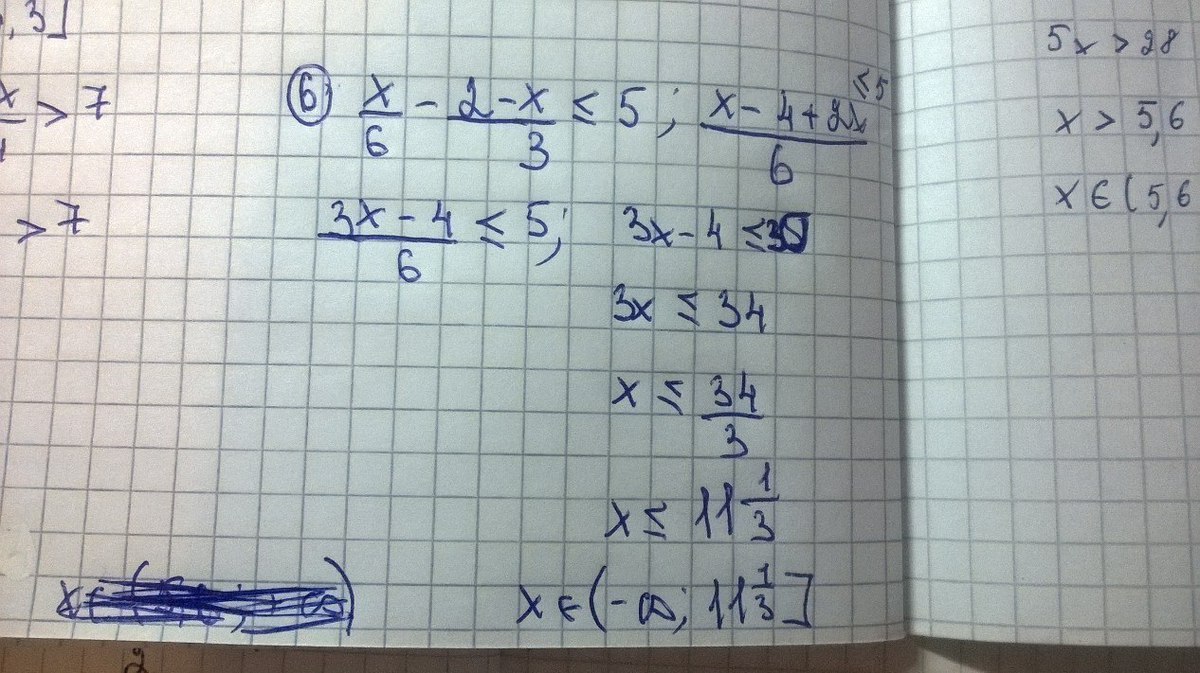 , 3]
x > 7
> 7
6 x/6 - 2-x/3 ≤ 5; x-4+2x/6 ≤ 5
3x-4/6 ≤ 5; 3x-4 ≤ 30
3x ≤ 34
x ≤ 34/3
x ≤ 11 1/3
x ∈ (-∞; 11 1/3]
5x > 28
x > 5,6
x ∈ (5,6